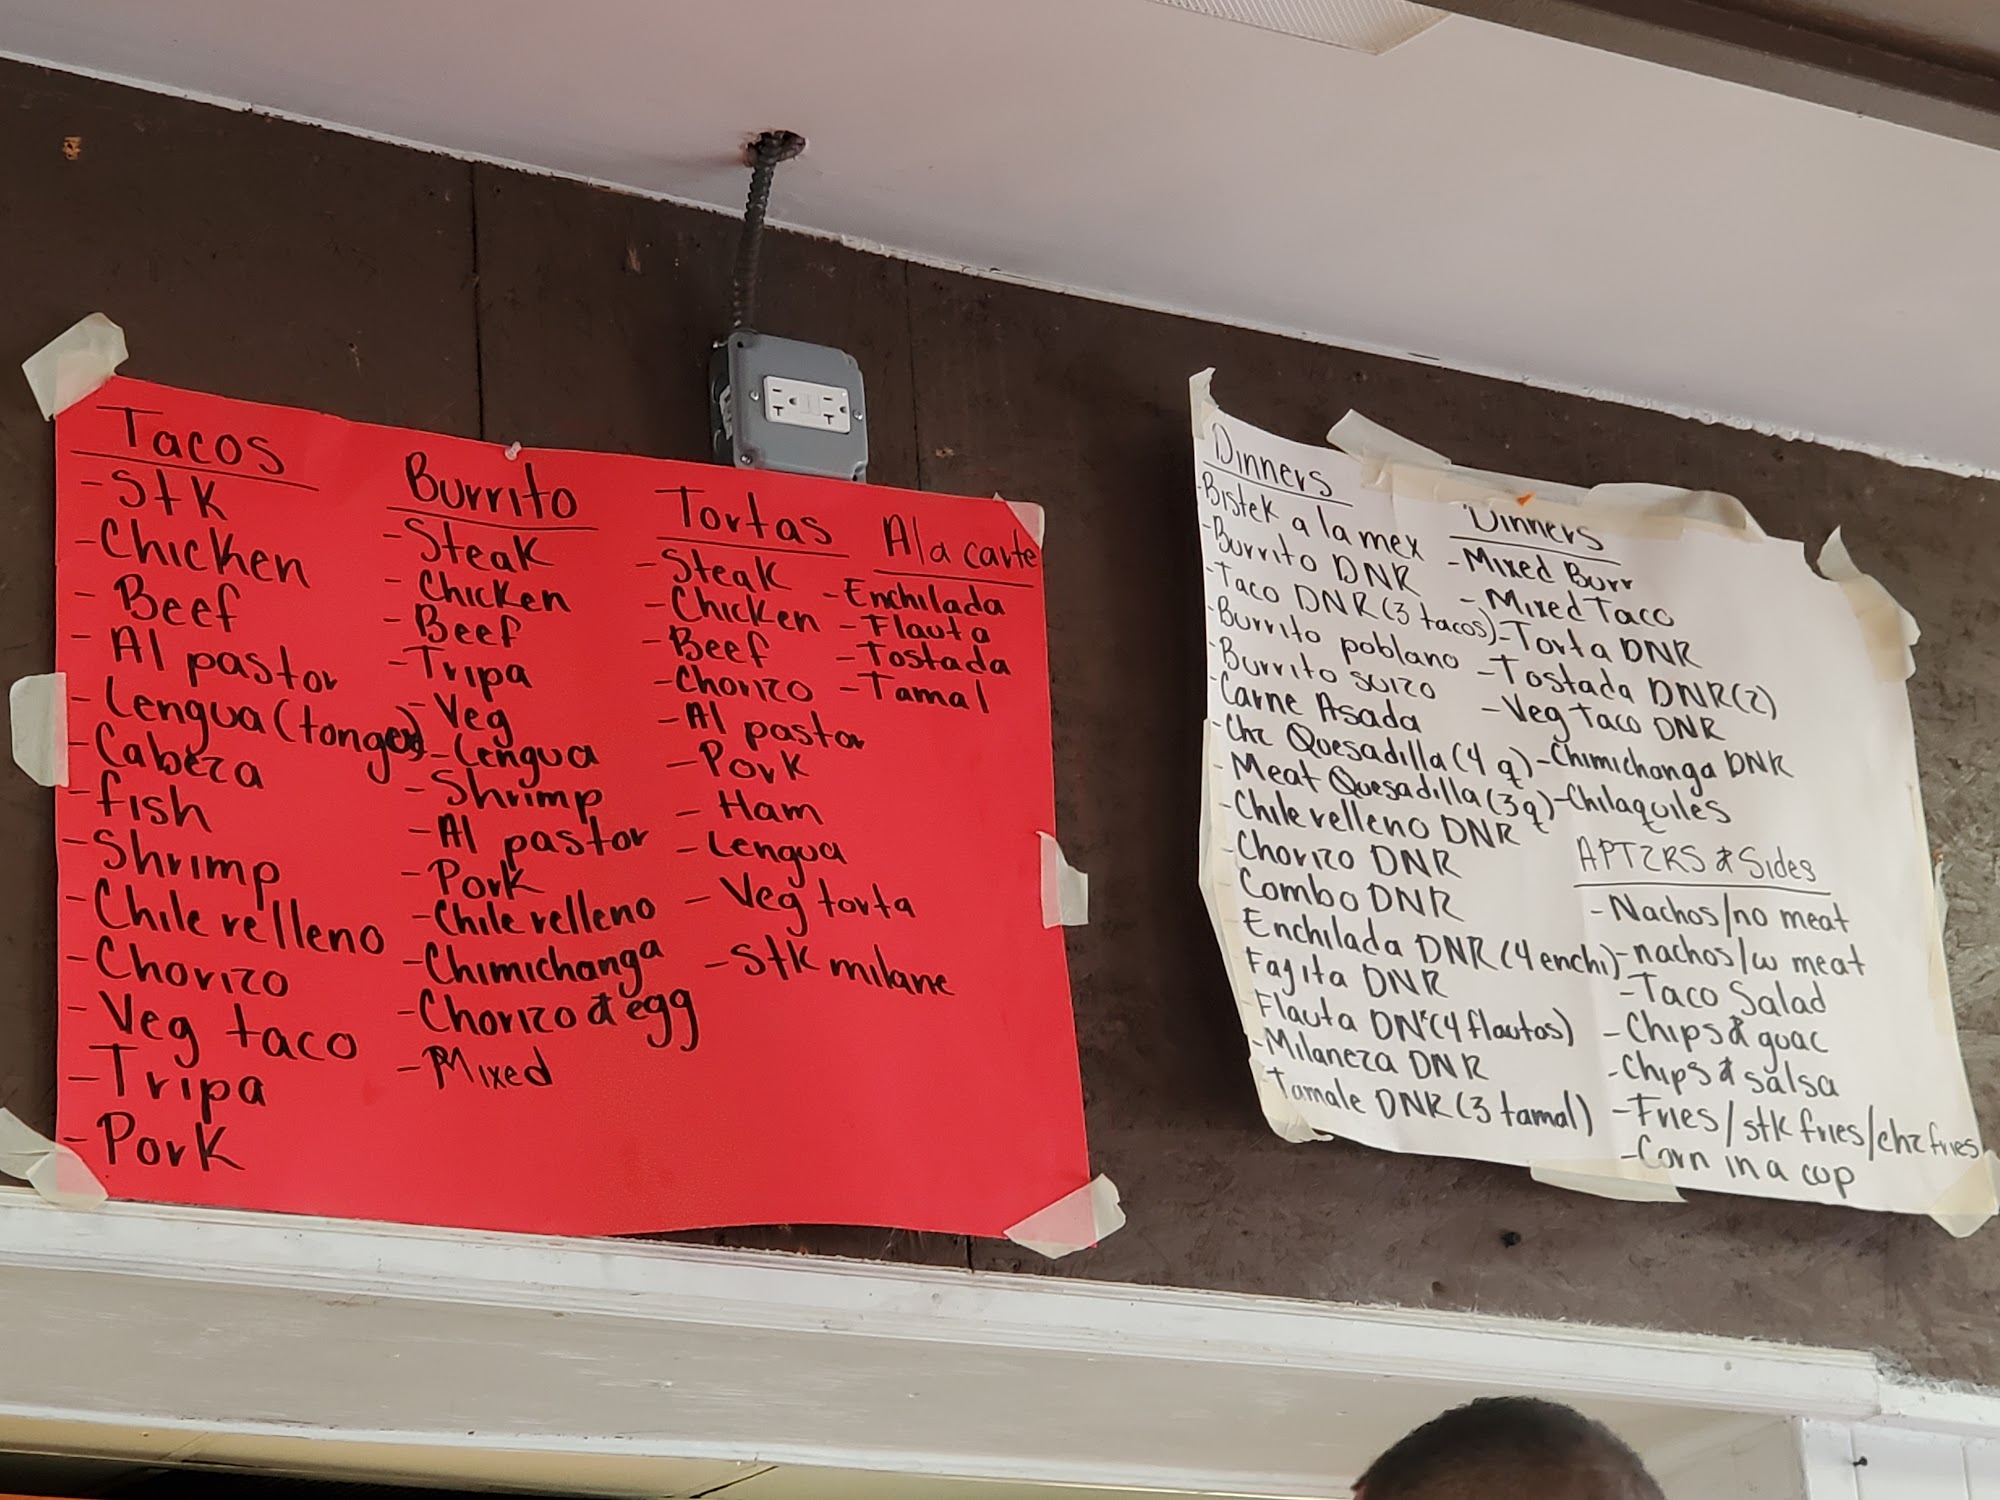 Tacos
-Stk
-Chicken
-Beef
-Al pastor
-Lengua (tonge)
-Cabeza
-fish
-Shrimp
-Chile relleno
-Chorizo
-Veg taco
-Tripa
-Pork
Burrito
-Steak
-Chicken
-Beef
-Tripa
-Veg
-Lengua
-Shrimp
-Al pastor
-Pork
-Chile relleno
-Chimichanga
-Chorizo & egg
-Mixed
Tortas
-Steak
-Chicken
-Beef
-Chorizo
-Al pastor
-Pork
-Ham
-Lengua
-Veg torta
-Stk milane
Al a carte
-Enchilada
-Flauta
-Tostada
-Tamal
Dinners
-Bistek a la mex
-Burrito DNR
-Taco DNR (3 tacos)
-Burrito poblano
-Burrito suizo
-Carne Asada
-Chz Quesadilla (4 q)
-Meat Quesadilla (3q)
-Chile relleno DNR
-Chorizo DNR
-Combo DNR
-Enchilada DNR (4 enchi)
-Fajita DNR
-Flauta DNR (4 flautas)
-Milaneza DNR
-Tamale DNR (3 tamal)
Dinners
-Mixed Burr
-Mixed Taco
-Torta DNR
-Tostada DNR (2)
-Veg taco DNR
-Chimichanga DNR
-Chilaquiles
APTZRS & Sides
-Nachos/no meat
-nachos/w meat
-Taco Salad
-Chips & guac
-Chips & salsa
-Fries/stk fries/chz fries
-Corn in a cup